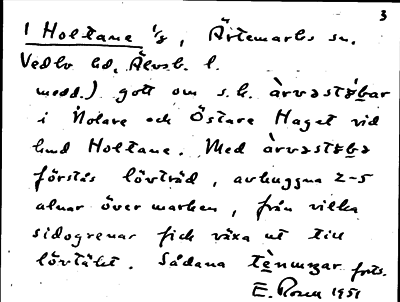 3
1 Holtane 1/8, Ärtemarks sn.
Vedbo hd. Älvsb. l.
medd.) gott om s.k. àrvəstøbar
i Nolare och Östare Haget vid
lund Holtane. Med àrvəstøbə
förstås lövträd, avhuggna 2-5
alnar över marken, från vilka
sidogrenar fick växa ut till
lövtäkt. Sådana tèningar forts.
E. Rosen 1951